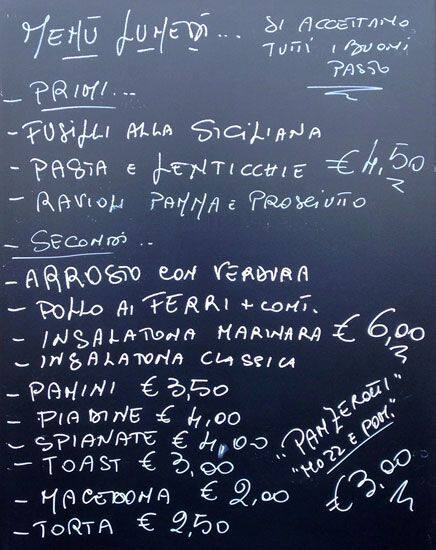 MENÙ LUNEDÌ...
SI ACCETTANO
TUTTI I BUONI
PASTO
- PRIMI...
- FUSILLI ALLA SICILIANA
- PASTA E LENTICCHIE € 4,50
- RAVIOLI PANNA E PROSCIUTTO
- SECONDI..
- ARROSTO CON VERDURA
- POLLO AI FERRI + CONT.
- INSALATONA MARINARA € 6,00
- INSALATONA CLASSICA
- PANINI € 3,50
- PIADINE € 4,00
- SPIANATE € 4,00
- TOAST € 3,00
- MACEDONA € 2,00
- TORTA € 2,50
"PANZEROTTI"
"MOZZ E POM."
€ 3,00